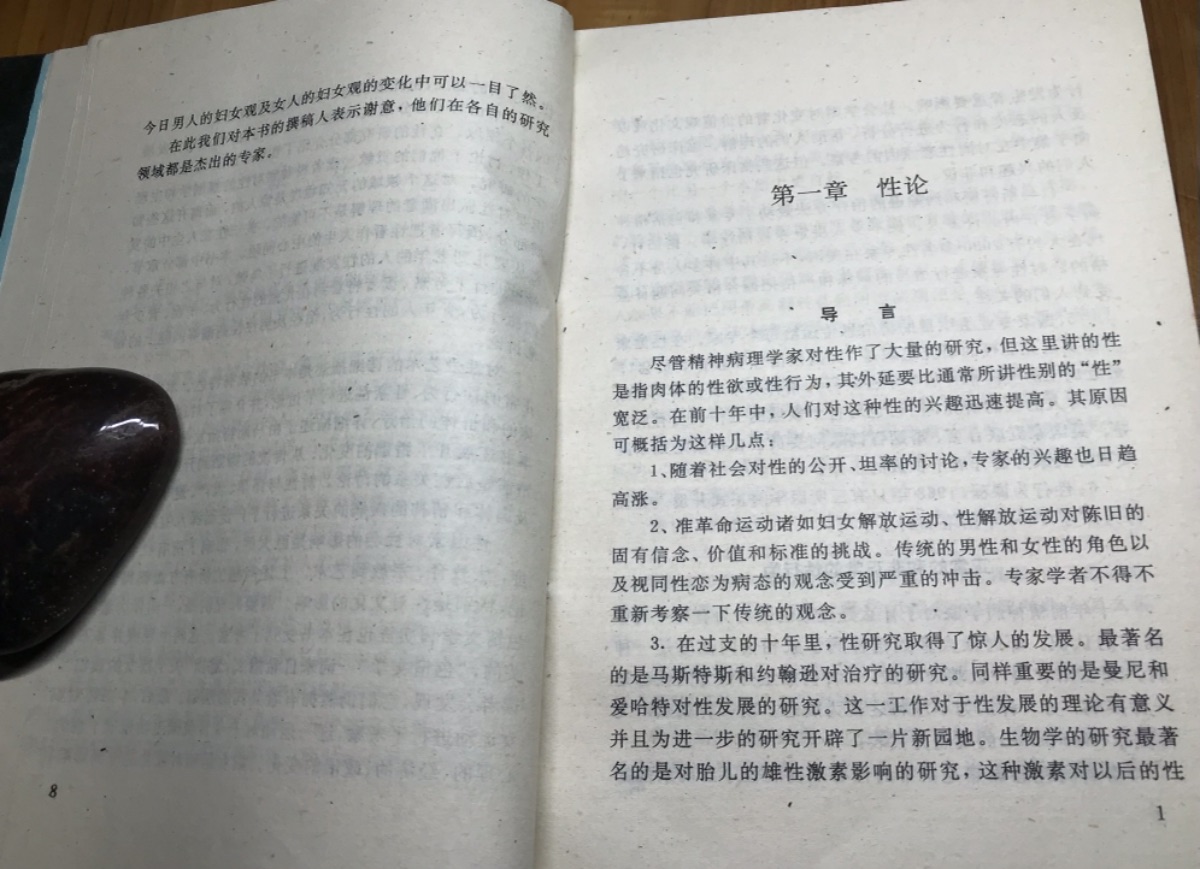 今日男人的妇女观及女人的妇女观的变化中可以一目了然。
在此我们对本书的撰稿人表示谢意，他们在各自的研究
领域都是杰出的专家。
8
第一章 性论
导 言
尽管精神病理学家对性作了大量的研究，但这里讲的性
是指肉体的性欲或性行为，其外延要比通常所讲性别的“性”
宽泛。在前十年中，人们对这种性的兴趣迅速提高。其原因
可概括为这样几点：
1、随着社会对性的公开、坦率的讨论，专家的兴趣也日趋
高涨。
2、准革命运动诸如妇女解放运动、性解放运动对陈旧的
固有信念、价值和标准的挑战。传统的男性和女性的角色以
及视同性恋为病态的观念受到严重的冲击。专家学者不得不
重新考察一下传统的观念。
3．在过支的十年里，性研究取得了惊人的发展。最著名
的是马斯特斯和约翰逊对治疗的研究。同样重要的是曼尼和
爱哈特对性发展的研究。这一工作对于性发展的理论有意义
并且为进一步的研究开辟了一片新园地。生物学的研究最著
名的是对胎儿的雄性激素影响的研究，这种激素对以后的性
1